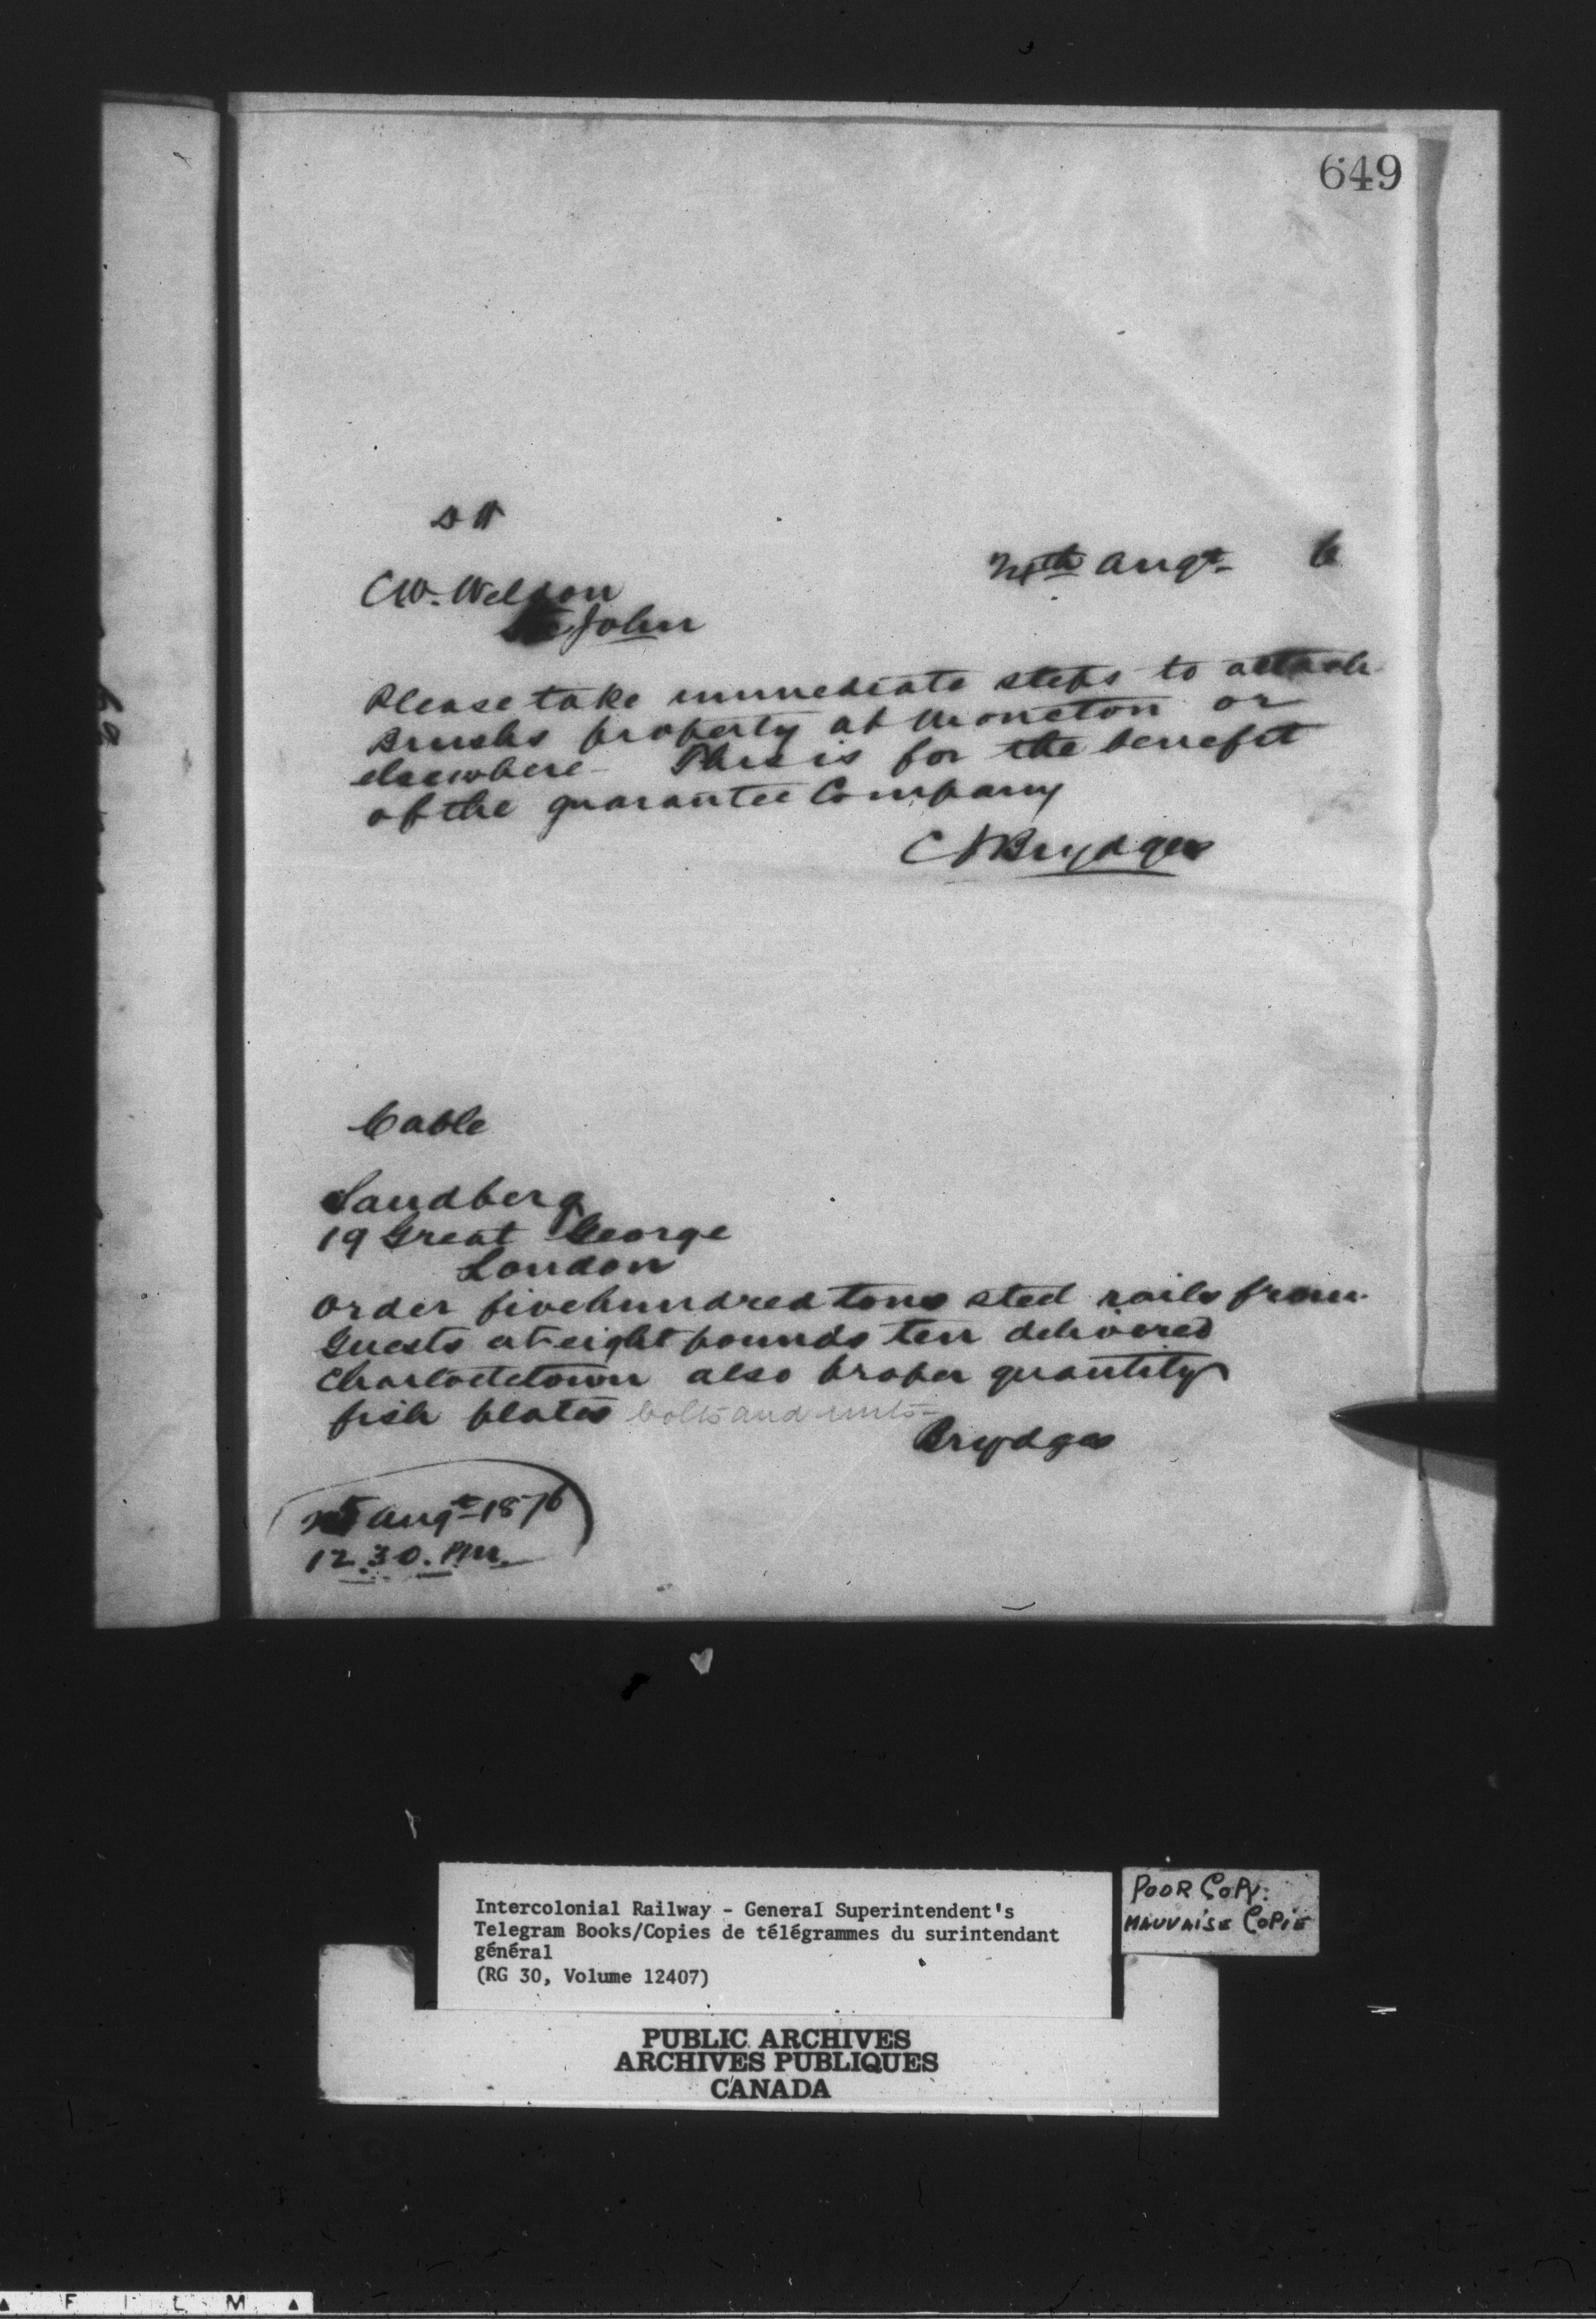 649
C.W. Weldon
St John
Augt 6
Please take immediate steps to attach
Brushs property at Moncton or
elsewhere - This is for the benefit
of the guarantee Company
CJBrydges
Cable
Sandberg
19 Great George
London
Order fivehundred tons steel rails from
Guests at eight pounds ten delivered
Charlottetown also proper quantity
fish plates bolts and nuts -
Brydges
25 Augt 1876
12.30. PM.
Intercolonial Railway - General Superintendent's
Telegram Books/Copies de télégrammes du surintendant
général
(RG 30, Volume 12407)
POOR COPY.
MAUVAISE COPIE
PUBLIC ARCHIVES
ARCHIVES PUBLIQUES
CANADA
F I L M